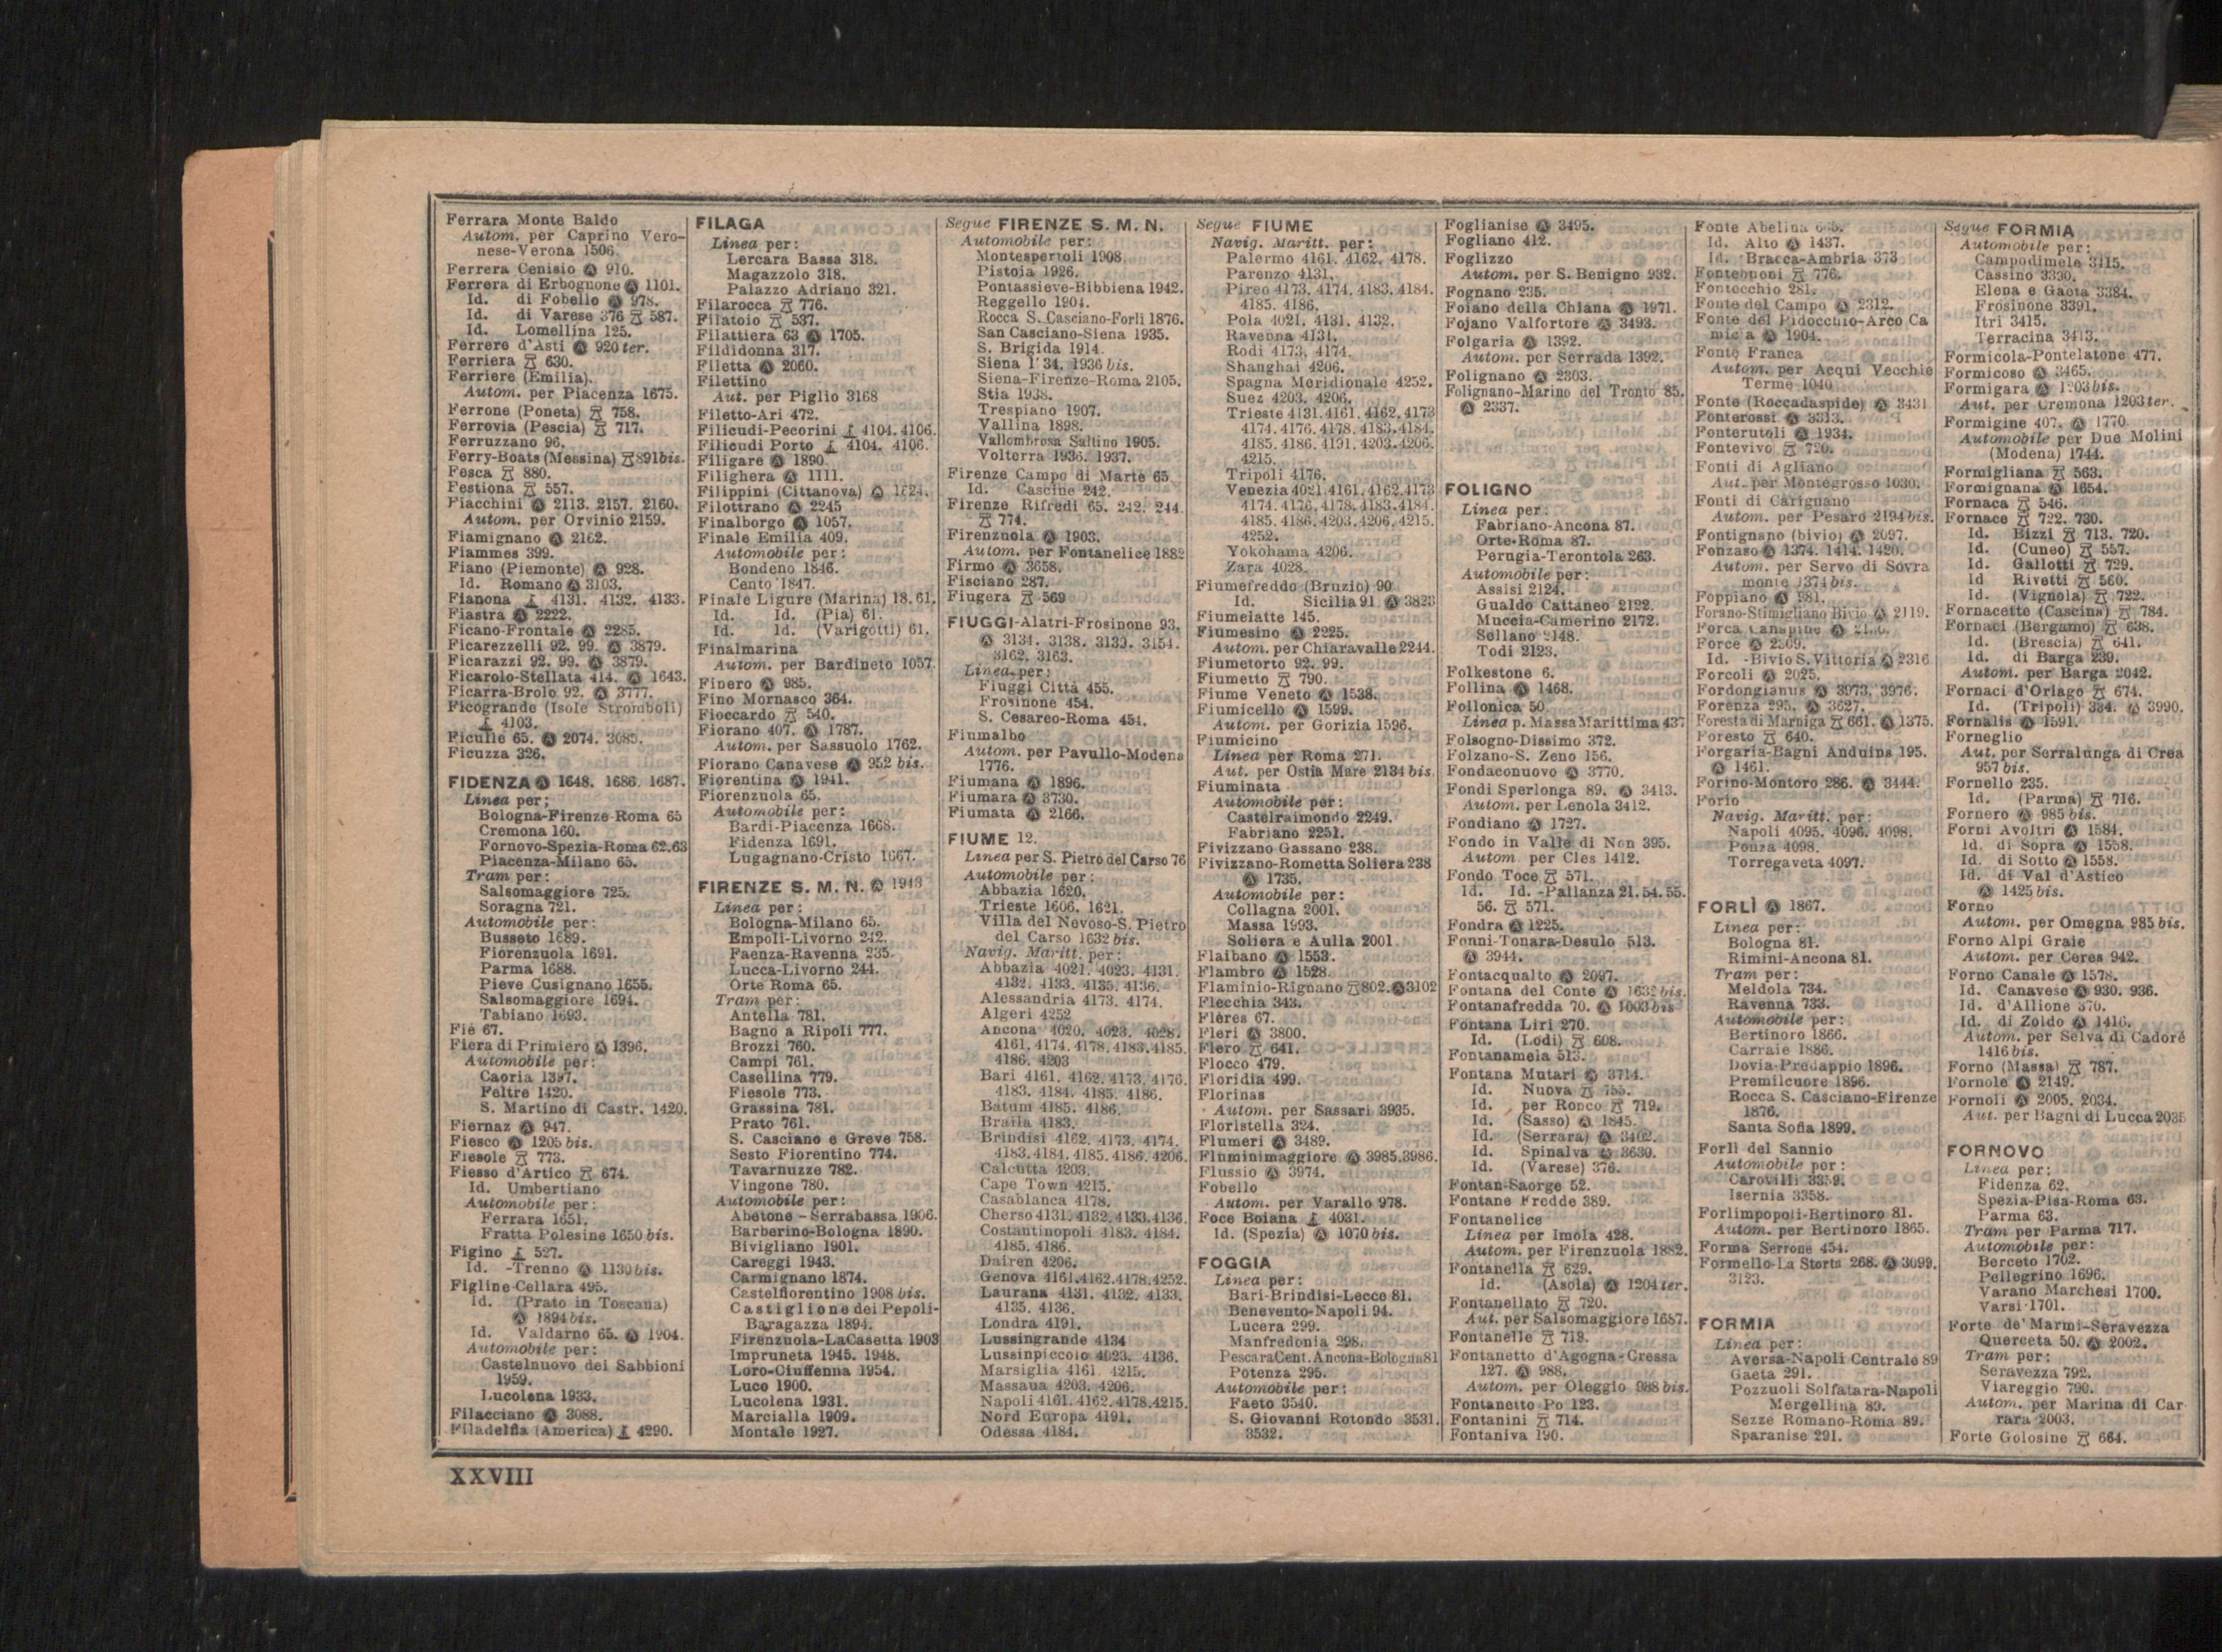 Ferrara Monte Baldo
Autom. per Caprino Vero-
nese-Verona 1506.
Ferrera Cenisio Ⓐ 910.
Ferrera di Erbognone Ⓐ 1101.
Id. di Fobello Ⓐ 978.
Id. di Varese 376 587.
Id. Lomellina 125.
Ferrere d'Asti Ⓐ 920 ter.
Ferriera 630.
Ferriere (Emilia).
Autom. per Piacenza 1675.
Ferrone (Poneta) 758.
Ferrovia (Pescia) 717.
Ferruzzano 96.
Ferry-Boats (Messina) 891 bis.
Fesca 880.
Festiona 557.
Fiacchini Ⓐ 2113. 2157. 2160.
Autom. per Orvinio 2159.
Fiamignano Ⓐ 2162.
Fiammes 399.
Fiano (Piemonte) Ⓐ 928.
Id. Romano Ⓐ 3103.
Fianona 4131. 4132. 4133.
Fiastra Ⓐ 2222.
Ficano-Frontale Ⓐ 2285.
Ficarezzelli 92. 99. Ⓐ 3879.
Ficarazzi 92. 99. Ⓐ 3879.
Ficarolo-Stellata 414. Ⓐ 1643.
Ficarra-Brolo 92. Ⓐ 3777.
Ficogrande (Isole Stromboli)
4103.
Ficulle 65. Ⓐ 2074.
Ficuzza 326.
FIDENZA Ⓐ 1648. 1686. 1687.
Linea per:
Bologna-Firenze-Roma 65
Cremona 160.
Fornovo-Spezia-Roma 62.63
Piacenza-Milano 65.
Tram per:
Salsomaggiore 725.
Soragna 721.
Automobile per:
Busseto 1689.
Fiorenzuola 1691.
Parma 1688.
Pieve Cusignano 1655.
Salsomaggiore 1694.
Tabiano 1693.
Fiè 67.
Fiera di Primiero Ⓐ 1396.
Automobile per:
Caoria 1397.
Feltre 1420.
S. Martino di Castr. 1420.
Fiernaz Ⓐ 947.
Fiesco Ⓐ 1205 bis.
Fiesole 773.
Fiesso d'Artico 674.
Id. Umbertiano
Automobile per:
Ferrara 1651.
Fratta Polesine 1650 bis.
Figino 527.
Id. -Trenno Ⓐ 1130 bis.
Figline-Cellara 495.
Id. (Prato in Toscana)
Ⓐ 1894 bis.
Id. Valdarno 65. Ⓐ 1904.
Automobile per:
Castelnuovo dei Sabbioni
1959.
Lucolena 1933.
Filacciano Ⓐ 3088.
Filadelfia (America) 4290.
FILAGA
Linea per:
Lercara Bassa 318.
Magazzolo 318.
Palazzo Adriano 321.
Filarocca 776.
Filatoio 537.
Filattiera 63 Ⓐ 1705.
Fildidonna 317.
Filetta Ⓐ 2060.
Filettino
Aut. per Piglio 3168
Filetto-Ari 472.
Filicudi-Pecorini 4104. 4106.
Filicudi Porto 4104. 4106.
Filigare Ⓐ 1890.
Filighera Ⓐ 1111.
Filippini (Cittanova) Ⓐ 1624.
Filottrano Ⓐ 2245
Finalborgo Ⓐ 1057.
Finale Emilia 409.
Automobile per:
Bondeno 1846.
Cento 1847.
Finale Ligure (Marina) 18. 61.
Id. Id. (Pia) 61.
Id. Id. (Varigotti) 61.
Finalmarina
Autom. per Bardineto 1057.
Finero Ⓐ 985.
Fino Mornasco 364.
Fioccardo 540.
Fiorano 407. Ⓐ 1787.
Autom. per Sassuolo 1762.
Fiorano Canavese Ⓐ 952 bis.
Fiorentina Ⓐ 1941.
Fiorenzuola 65.
Automobile per:
Bardi-Piacenza 1668.
Fidenza 1691.
Lugagnano-Cristo 1667.
FIRENZE S. M. N. Ⓐ 1943
Linea per:
Bologna-Milano 65.
Empoli-Livorno 242.
Faenza-Ravenna 235.
Lucca-Livorno 244.
Orte Roma 65.
Tram per:
Antella 781.
Bagno a Ripoli 777.
Brozzi 760.
Campi 761.
Casellina 779.
Fiesole 773.
Grassina 781.
Prato 761.
S. Casciano e Greve 758.
Sesto Fiorentino 774.
Tavarnuzze 782.
Vingone 780.
Automobile per:
Abetone-Serrabassa 1906.
Barberino-Bologna 1890.
Bivigliano 1901.
Careggi 1943.
Carmignano 1874.
Castelfiorentino 1908 bis.
Castiglione dei Pepoli-
Baragazza 1894.
Firenzuola-LaCasetta 1903
Impruneta 1945. 1948.
Loro-Ciuffenna 1954.
Luco 1900.
Lucolena 1931.
Marcialla 1909.
Montale 1927.
Segue FIRENZE S. M. N.
Automobile per:
Montespertoli 1908.
Pistoia 1926.
Pontassieve-Bibbiena 1942.
Reggello 1904.
Rocca S. Casciano-Forlì 1876.
San Casciano-Siena 1935.
S. Brigida 1914.
Siena 1934. 1936 bis.
Siena-Firenze-Roma 2105.
Stia 1938.
Trespiano 1907.
Vallina 1898.
Vallombrosa Saltino 1905.
Volterra 1936. 1937.
Firenze Campo di Marte 65
Id. Cascine 242.
Firenze Rifredi 65. 242. 244.
774.
Firenzuola Ⓐ 1903.
Autom. per Fontanelice 1882
Firmo Ⓐ 3658.
Fisciano 287.
Fiugera 569
FIUGGI-Alatri-Frosinone 93.
Ⓐ 3134. 3138. 3139. 3154.
3162. 3163.
Linea per:
Fiuggi Città 455.
Frosinone 454.
S. Cesareo-Roma 454.
Fiumalbo
Autom. per Pavullo-Modena
1776.
Fiumana Ⓐ 1896.
Fiumara Ⓐ 3730.
Fiumata Ⓐ 2166.
FIUME 12.
Linea per S. Pietro del Carso 76
Automobile per:
Abbazia 1620.
Trieste 1606. 1621.
Villa del Nevoso-S. Pietro
del Carso 1632 bis.
Navig. Maritt. per:
Abbazia 4021. 4023. 4131.
4132. 4133. 4135. 4136.
Alessandria 4173. 4174.
Algeri 4252
Ancona 4020. 4023. 4028.
4161. 4174. 4178. 4183. 4185.
4186. 4203
Bari 4161. 4162. 4173. 4176.
4183. 4184. 4185. 4186.
Batum 4185. 4186.
Braila 4183.
Brindisi 4162. 4173. 4174.
4183. 4184. 4185. 4186. 4206.
Calcutta 4203.
Cape Town 4215.
Casablanca 4178.
Cherso 4131. 4132. 4133. 4136.
Costantinopoli 4183. 4184.
4185. 4186.
Dairen 4206.
Genova 4161. 4162. 4178. 4252.
Laurana 4131. 4132. 4133.
4135. 4136.
Londra 4191.
Lussingrande 4134
Lussinpiccolo 4023. 4136.
Marsiglia 4161. 4215.
Massaua 4203. 4206.
Napoli 4161. 4162. 4178. 4215.
Nord Europa 4191.
Odessa 4184.
Segue FIUME
Navig. Maritt. per:
Palermo 4161. 4162. 4178.
Parenzo 4131.
Pireo 4173. 4174. 4183. 4184.
4185. 4186.
Pola 4021. 4131. 4132.
Ravenna 4131.
Rodi 4173. 4174.
Shanghai 4206.
Spagna Meridionale 4252.
Suez 4203. 4206.
Trieste 4131. 4161. 4162. 4173
4174. 4176. 4178. 4183. 4184.
4185. 4186. 4191. 4203. 4206.
4215.
Tripoli 4176.
Venezia 4021. 4161. 4162. 4173
4174. 4176. 4178. 4183. 4184.
4185. 4186. 4203. 4206. 4215.
4252.
Yokohama 4206.
Zara 4028.
Fiumefreddo (Bruzio) 90
Id. Sicilia 91 Ⓐ 3823
Fiumelatte 145.
Fiumesino Ⓐ 2225.
Autom. per Chiaravalle 2244.
Fiumetorto 92. 99.
Fiumetto 790.
Fiume Veneto Ⓐ 1538.
Fiumicello Ⓐ 1599.
Autom. per Gorizia 1596.
Fiumicino
Linea per Roma 271.
Aut. per Ostia Mare 2134 bis
Fiuminata
Automobile per:
Castelraimondo 2249.
Fabriano 2251.
Fivizzano Gassano 238.
Fivizzano-Rometta Soliera 238
Ⓐ 1735.
Automobile per:
Collagna 2001.
Massa 1993.
Soliera e Aulla 2001.
Flaibano Ⓐ 1553.
Flambro Ⓐ 1528.
Flaminio-Rignano 802. Ⓐ 3102
Flecchia 343.
Flères 67.
Fleri Ⓐ 3800.
Flero 641.
Flocco 479.
Floridia 499.
Florinas
Autom. per Sassari 3935.
Floristella 324.
Flumeri Ⓐ 3489.
Fluminimaggiore Ⓐ 3985. 3986.
Flussio Ⓐ 3974.
Fobello
Autom. per Varallo 978.
Foce Boiana 4031.
Id. (Spezia) Ⓐ 1070 bis.
FOGGIA
Linea per:
Bari-Brindisi-Lecce 81.
Benevento-Napoli 94.
Lucera 299.
Manfredonia 298.
Pescara Cent. Ancona-Bologna 81
Potenza 295.
Automobile per:
Faeto 3540.
S. Giovanni Rotondo 3531.
3532.
Foglianise Ⓐ 3495.
Fogliano 412.
Foglizzo
Autom. per S. Benigno 932.
Fognano 235.
Foiano della Chiana Ⓐ 1971.
Fojano Valfortore Ⓐ 3493.
Folgaria Ⓐ 1392.
Autom. per Serrada 1392.
Folignano Ⓐ 2303.
Folignano-Marino del Tronto 85.
Ⓐ 2337.
FOLIGNO
Linea per:
Fabriano-Ancona 87.
Orte-Roma 87.
Perugia-Terontola 263.
Automobile per:
Assisi 2124.
Gualdo Cattaneo 2122.
Muccia-Camerino 2172.
Sellano 2148.
Todi 2123.
Folkestone 6.
Follina Ⓐ 1468.
Follonica 50.
Linea p. Massa Marittima 437
Folsogno-Dissimo 372.
Folzano-S. Zeno 156.
Fondaconuovo Ⓐ 3770.
Fondi Sperlonga 89. Ⓐ 3413.
Autom. per Lenola 3412.
Fondiano Ⓐ 1727.
Fondo in Valle di Non 395.
Autom. per Cles 1412.
Fondo Toce 571.
Id. Id. -Pallanza 21. 54. 55.
56. 571.
Fondra Ⓐ 1225.
Fonni-Tonara-Desulo 513.
Ⓐ 3944.
Fontacqualto Ⓐ 2097.
Fontana del Conte Ⓐ 1632 bis.
Fontanafredda 70. Ⓐ 1003 bis
Fontana Liri 270.
Id. (Lodi) 608.
Fontanamela 513.
Fontana Mutari Ⓐ 3714.
Id. Nuova 755.
Id. per Ronco 719.
Id. (Sasso) Ⓐ 1845.
Id. (Serrara) Ⓐ 3402.
Id. Spinalva Ⓐ 3630.
Id. (Varese) 376.
Fontan-Saorge 52.
Fontane Fredde 389.
Fontanelice
Linea per Imola 428.
Autom. per Firenzuola 1882.
Fontanella 629.
Id. (Asola) Ⓐ 1204 ter.
Fontanellato 720.
Aut. per Salsomaggiore 1687.
Fontanelle 719.
Fontanetto d'Agogna-Cressa
127. Ⓐ 988.
Autom. per Oleggio 988 bis.
Fontanetto Po 123.
Fontanini 714.
Fontaniva 190.
Fonte Abelina
Id. Alto Ⓐ 1437.
Id. Bracca-Ambria 373
Fontebuoni 776.
Fontecchio 281.
Fonte del Campo Ⓐ 2312.
Fonte del Pidocchio-Arco Ca
Ⓐ 1904.
Fonte Franca
Autom. per Acqui Vecchie
Terme 1040
Fonte (Roccadaspide) Ⓐ 3431
Fonterossi Ⓐ 3313.
Fonterutoli Ⓐ 1934.
Fontevivo 720.
Fonti di Agliano
Aut. per Montegrosso 1030.
Fonti di Carignano
Autom. per Pesaro 2194 bis.
Fontignano (bivio) Ⓐ 2097.
Fonzaso Ⓐ 1374. 1414. 1420.
Autom. per Servo di Sovra
monte 1374 bis.
Foppiano Ⓐ 981.
Forano-Stimigliano Bivio Ⓐ 2119.
Forca Canapine Ⓐ
Force Ⓐ 2309.
Id. -Bivio S. Vittoria Ⓐ 2316
Forcoli Ⓐ 2025.
Fordongianus Ⓐ 3973. 3976.
Forenza 295. Ⓐ 3627.
Foresta di Marniga 661. Ⓐ 1375.
Foresto 640.
Forgaria-Bagni Anduins 195.
Ⓐ 1461.
Forino-Montoro 286. Ⓐ 3444.
Forio
Navig. Maritt. per:
Napoli 4095. 4096. 4098.
Ponza 4098.
Torregaveta 4097.
FORLÌ Ⓐ 1867.
Linea per:
Bologna 81.
Rimini-Ancona 81.
Tram per:
Meldola 734.
Ravenna 733.
Automobile per:
Bertinoro 1866.
Carraie 1886.
Dovia-Predappio 1896.
Premilcuore 1896.
Rocca S. Casciano-Firenze
1876.
Santa Sofia 1899.
Forlì del Sannio
Automobile per:
Carovilli 3359.
Isernia 3358.
Forlimpopoli-Bertinoro 81.
Autom. per Bertinoro 1865.
Forma Serrone 454.
Formello-La Storta 268. Ⓐ 3099.
3123.
FORMIA
Linea per:
Aversa-Napoli Centrale 89
Gaeta 291.
Pozzuoli Solfatara-Napoli
Mergellina 89.
Sezze Romano-Roma 89.
Sparanise 291.
Segue FORMIA
Automobile per:
Campodimele 3415.
Cassino 3390.
Elena e Gaeta 3384.
Frosinone 3391.
Itri 3415.
Terracina 3413.
Formicola-Pontelatone 477.
Formicoso Ⓐ 3465.
Formigara Ⓐ 1203 bis.
Aut. per Cremona 1203 ter.
Formigine 407. Ⓐ 1770.
Automobile per Due Molini
(Modena) 1744.
Formigliana 563.
Formignana Ⓐ 1654.
Fornaca 546.
Fornace 722. 730.
Id. Bizzi 713. 720.
Id. (Cuneo) 557.
Id. Gallotti 729.
Id Rivetti 560.
Id. (Vignola) 722.
Fornacette (Cascina) 784.
Fornaci (Bergamo) 638.
Id. (Brescia) 641.
Id. di Barga 239.
Autom. per Barga 2042.
Fornaci d'Oriago 674.
Id. (Tripoli) 334. Ⓐ 3990.
Fornalis Ⓐ 1591.
Forneglio
Aut. per Serralunga di Crea
957 bis.
Fornello 235.
Id. (Parma) 716.
Fornero Ⓐ 985 bis.
Forni Avoltri Ⓐ 1584.
Id. di Sopra Ⓐ 1558.
Id. di Sotto Ⓐ 1558.
Id. di Val d'Astico
Ⓐ 1425 bis.
Forno
Autom. per Omegna 985 bis.
Forno Alpi Graie
Autom. per Ceres 942.
Forno Canale Ⓐ 1578.
Id. Canavese Ⓐ 930. 936.
Id. d'Allione 370.
Id. di Zoldo Ⓐ 1416.
Autom. per Selva di Cadore
1416 bis.
Forno (Massa) 787.
Fornole Ⓐ 2149.
Fornoli Ⓐ 2005. 2034.
Aut. per Bagni di Lucca 2035
FORNOVO
Linea per:
Fidenza 62.
Spezia-Pisa-Roma 63.
Parma 63.
Tram per Parma 717.
Automobile per:
Berceto 1702.
Pellegrino 1696.
Varano Marchesi 1700.
Varsi 1701.
Forte de' Marmi-Seravezza
Querceta 50. Ⓐ 2002.
Tram per:
Seravezza 792.
Viareggio 790.
Autom. per Marina di Car
rara 2003.
Forte Golosine 664.
XXVIII